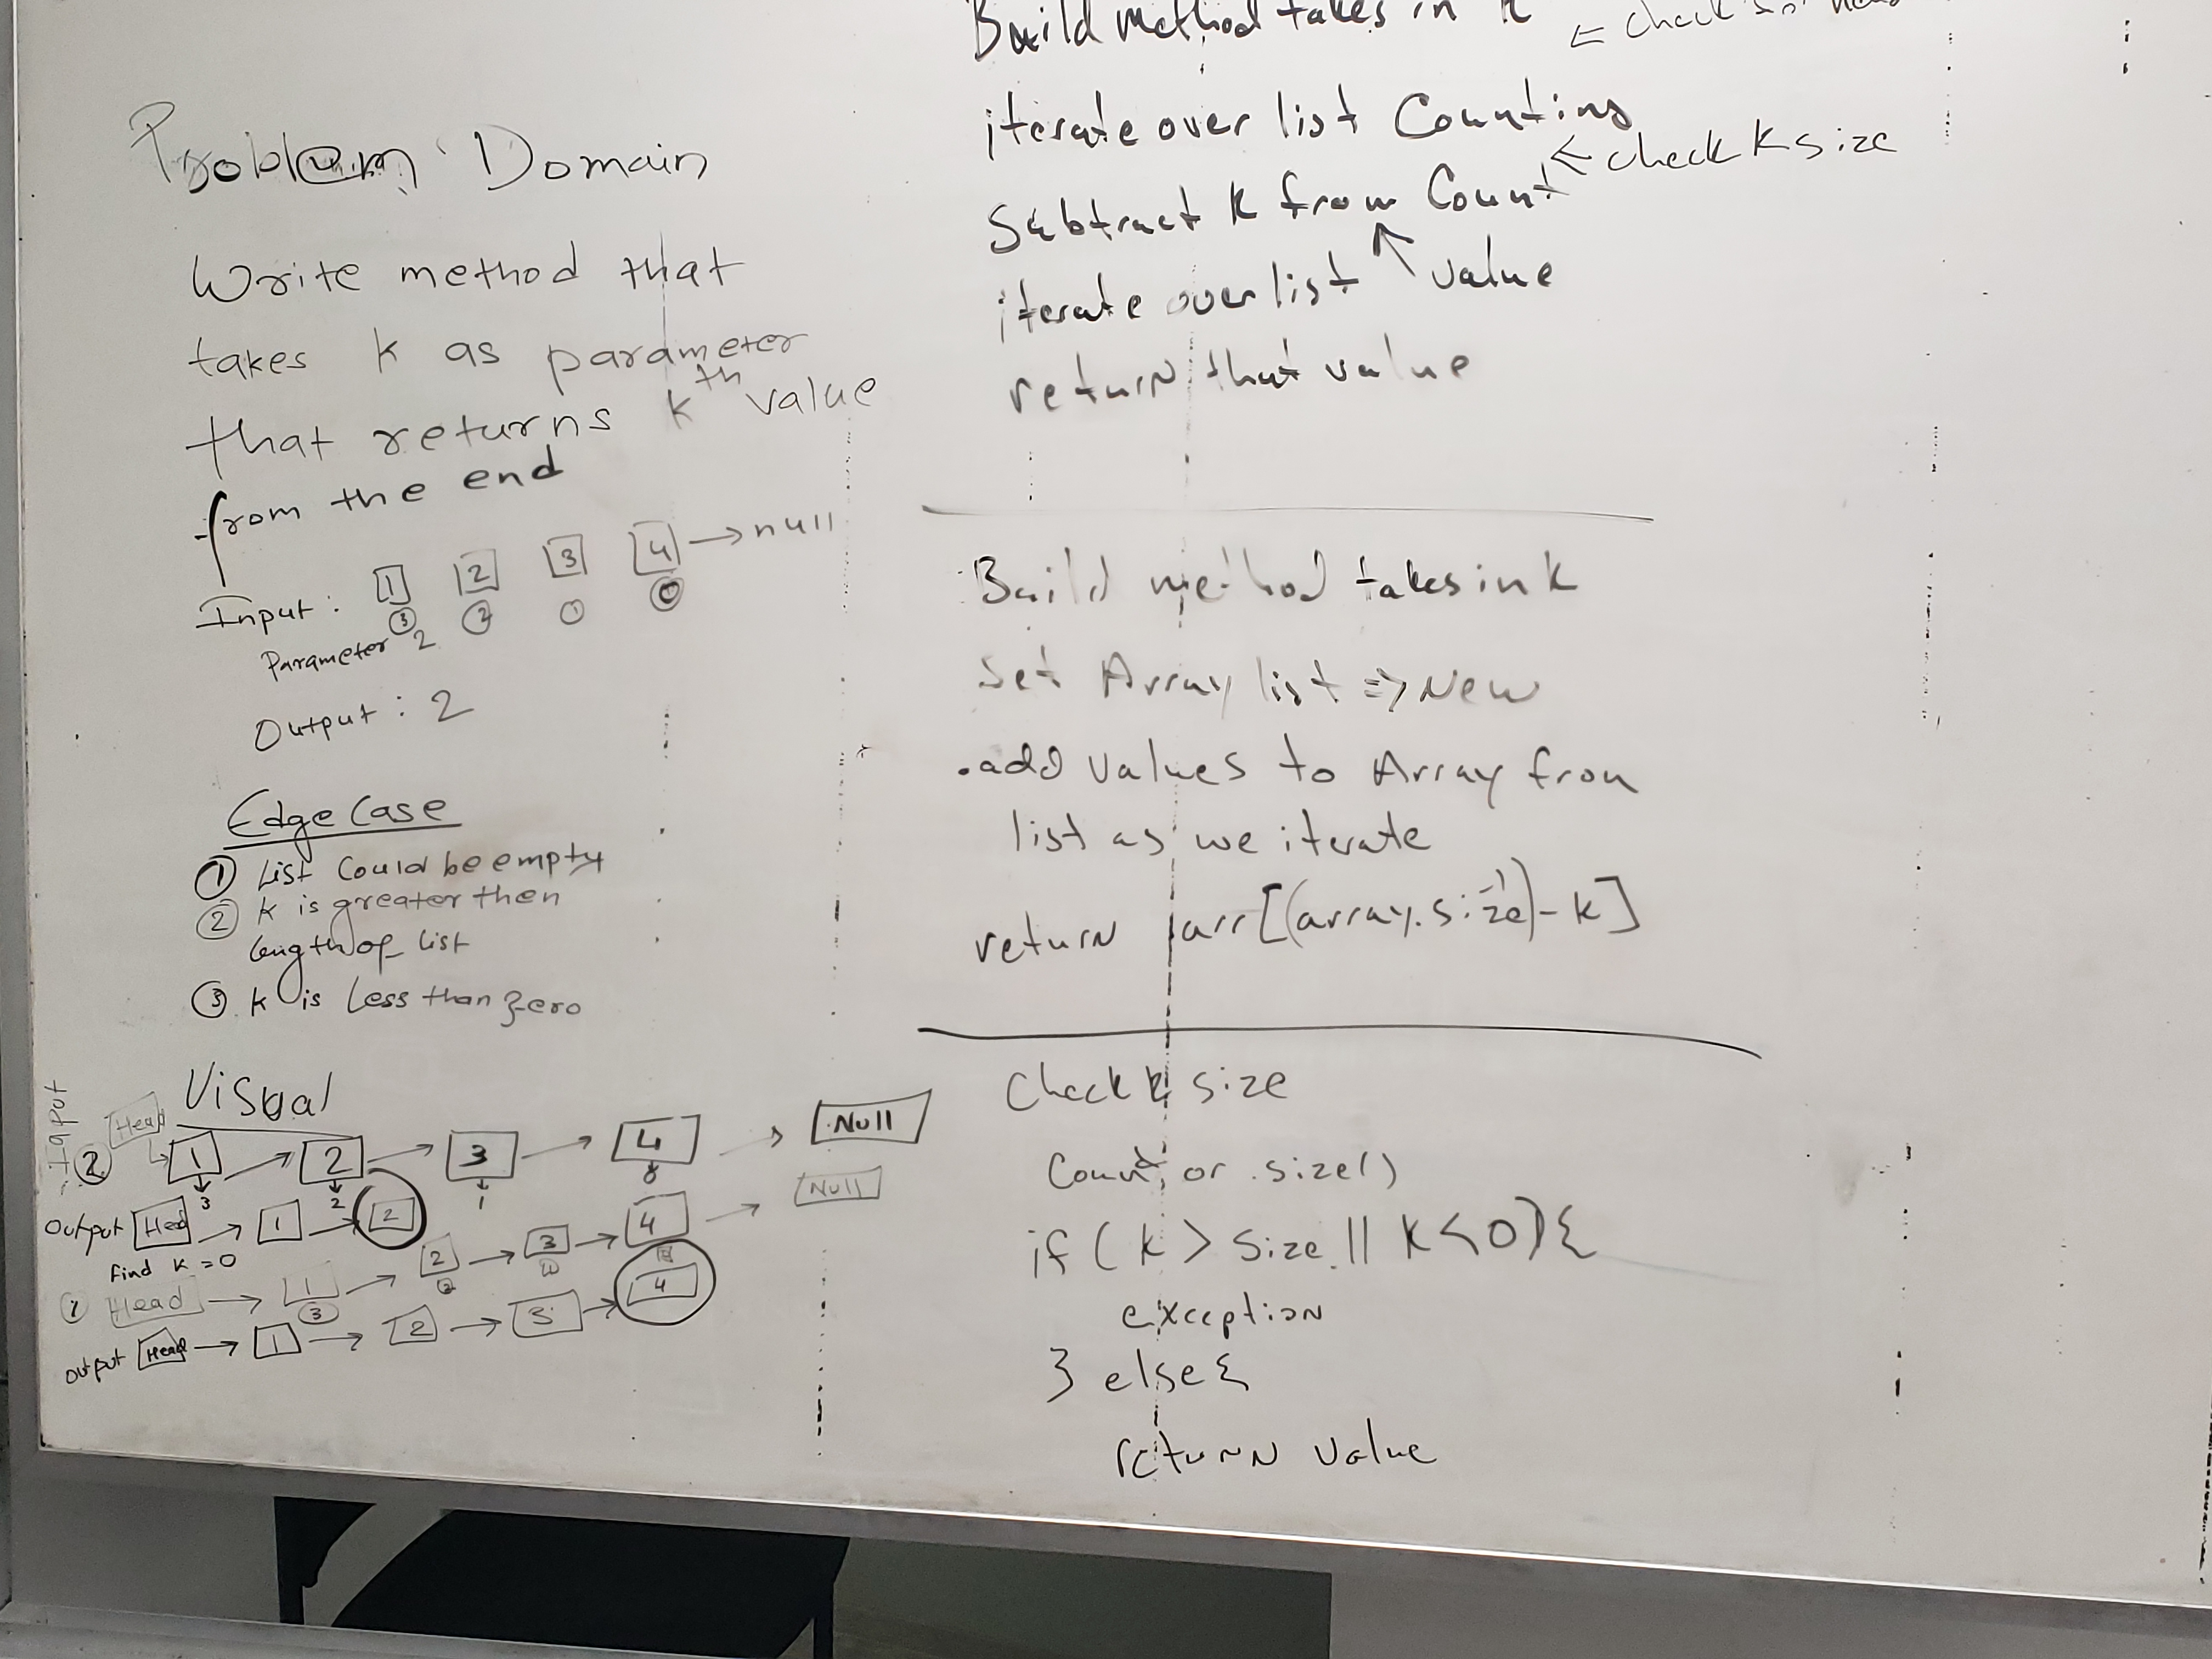 Problem Domain
Write method that
takes k as parameter
that returns kth value
from the end
Input: 1 2 3 4 → null
3 2 1 0
Parameter 2
Output: 2
Edge Case
① List could be empty
② k is greater then
length of list
③ k is less than zero
Visual
Input
Head
② 1 → 2 → 3 → 4 → Null
3 2 1 0
Output Head → 1 → 2
find k = 0
① Head → 1 → 2 → 3 → 4 → Null
3 2
Output Head → 1 → 2 → 3 → 4
Build method takes in k ← check
iterate over list Counting
← check k size
Subtract k from Count
iterate over list ↑ value
return that value
Build method takes in k
Set Array list => New
.add values to Array from
list as we iterate
return arr[(array.size-1)-k]
Check k size
Count or .size()
if (k > size || k<0){
exception
} else{
return value